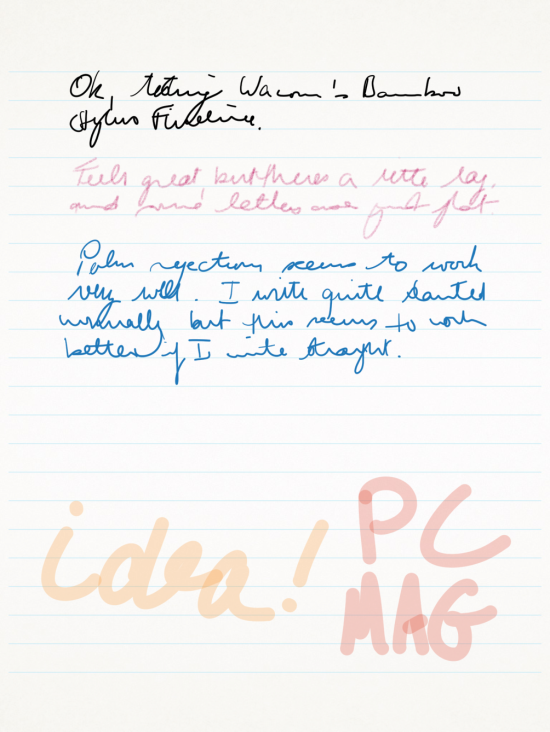 Ok, testing Wacom's Bamboo
Stylus Fineline.
Feels great, but theres a little lag.
and some letters are just flat
Palm rejection seems to work
very well. I write quite slanted
normally but this seems to work
better if I write straight.
idea! PC
MAG